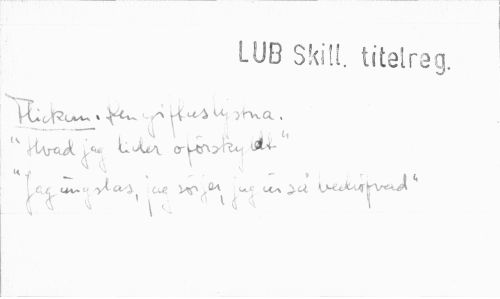 LUB Skill. titelreg.
Flickan. Den giftaslystna.
"Hvad jag lider oförskyldt"
"Jag ängslas, jag sörjer, jag är så bedröfvad"